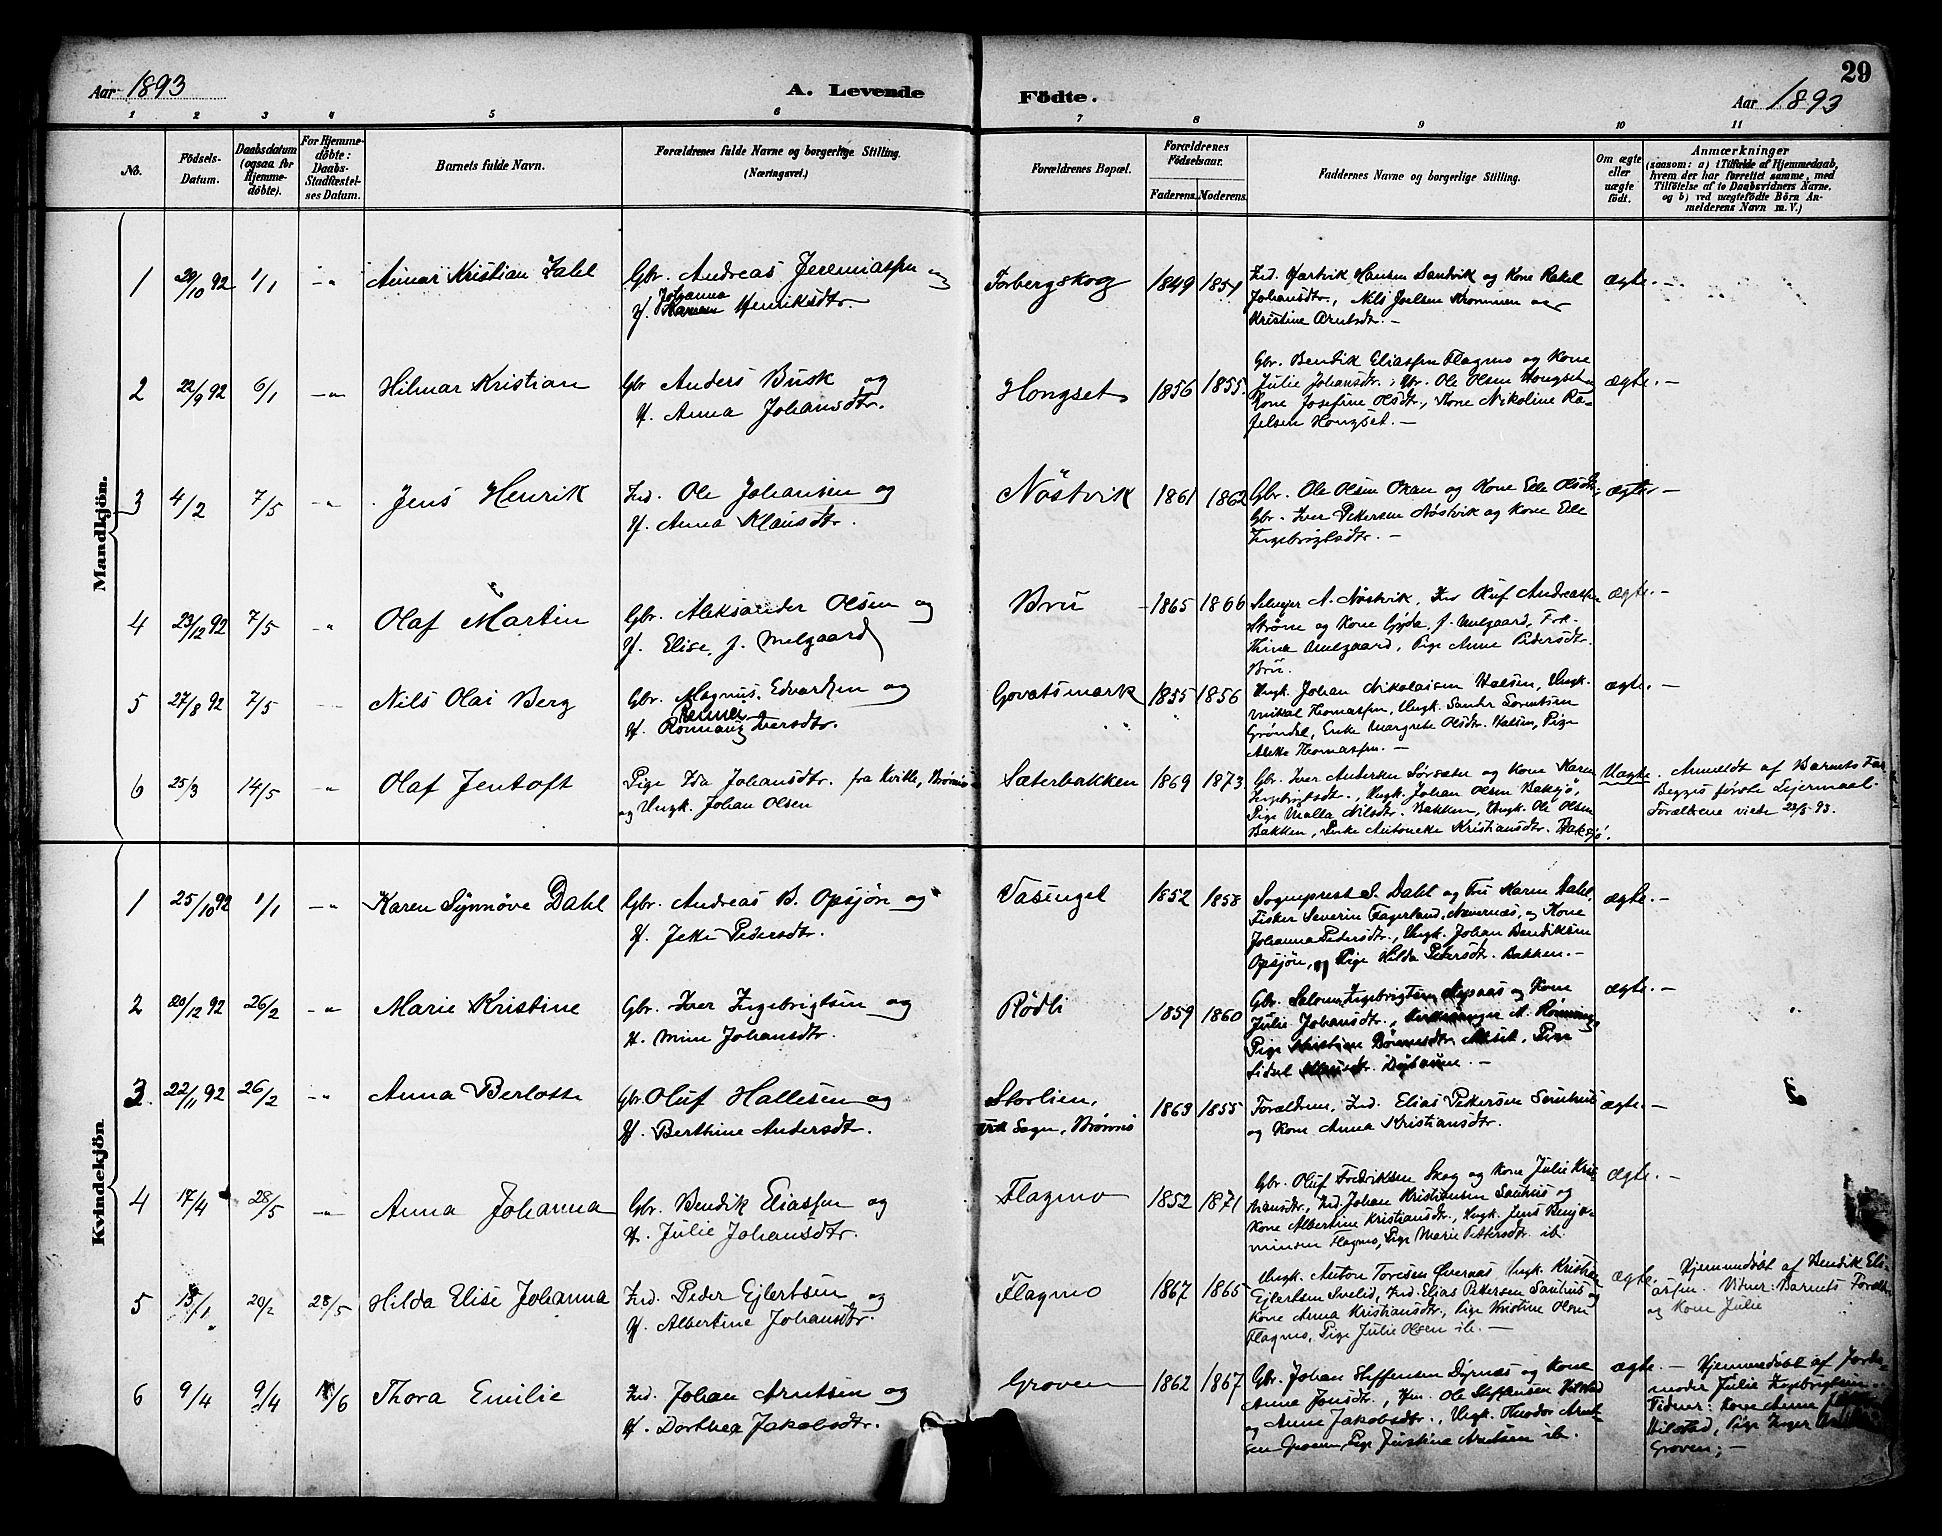 29
Aar 1893
A. Levende
Födte.
Aar 1893
1 2 3 4 5 6 7 8 9 10 11
No.
Födsels-Datum.
Daabsdatum (ogsaa for Hjemmedöbte).
For Hjemmedöbte: Daabs-Stadfæstelses Datum.
Barnets fulde Navn.
Forældrenes fulde Navne og borgerlige Stilling. (Næringsvei.)
Forældrenes Bopæl.
Forældrenes Födselsaar.
Faderens. Moderens.
Faddernes Navne og borgerlige Stilling.
Om ægte eller uægte födt.
Anmærkninger
(saasom: a) i Tilfælde af Hjemmedaab, hvem der har forrettet samme, med Tilföielse af to Daabsvidners Navne, og b) ved uægtefödte Börn Anmelderens Navn m. V.)
Mandkjön.
1 29/10 92 1/1 -"- Kristian Gbr. Andreas Jeremiassen og
H. Johanna Henriksdtr.
Forbergskog 1849 1854
Ind. Hartvik Hansen Sandvik og Kone Rakel
Johansdtr., Nils Joelsen Krommen og
Kristine Arntsdt. -
ægte. -
2 22/9 92 6/1 -"- Hilmar Kristian Gbr Anders Busk og
H. Anna Johansdtr.
Hongset 1856 1855.
Gbr. Bendik Eliassen Flagmo og Kone
Julie Johansdtr., Gbr. Ole Olsen Hongset og
Kone Josefine Olsdtr., Kone Nikoline
Hongset. -
ægte. -
3 4/2 7/5 -"- Jens Henrik Ind. Ole Johansen og
H. Anna Klausdtr.
Nöstvik 1861 1862
Gbr. Ole Olsen og Kone Olsdtr.
Gbr. Iver Pettersen Nöstvik og Kone
Ingebrigtsdtr. -
ægte. -
4 23/12 92 7/5 -"- Olaf Martin Gbr. Aleksander Olsen og
H. Elise J. Melgaard
Brü 1865 1866
N. Nöstvik, Oluf Andreassen
og Kone J. Melgaard,
Melgaard, Pige Anne Pedersdtr.
Brü.
ægte. -
5 27/8 92 7/5 Nils Olai Berg Gbr. Magnus Edvardsen og
H. Iversdtr.
Govatsmark 1855 1856
Ungk. Johan Nikolaisen Halsen, Ungk.
Thomassen, Ungk. Sorentsen
Gröndal, Enke Margrete Olsdtr. Halsen, Pige
Thomassen. -
ægte. -
6 25/3 14/5 -"- Olaf Jentoft Pige Ida Johansdtr. fra Brönnö
og Ungk. Johan Olsen
Sæterbakken 1869 1873
Gbr. Iver Andersen og Kone Karen
Ingebrigtsdtr., Ungk. Johan Olsen
Pige Malla Nilsdtr. Bakken, Ungk. Ole Olsen
Bakken, Enke Kristiansdtr.
Uægte. Anmeldt af Barnets Far
Begges første Leiermaal.
Forældrene viede 93.
Kvindekjön
1 25/10 92 1/1 -"- Karen Synnöve Dahl Gbr. Andreas B. Opsjön og
H. Pedersdtr.
Vasengel 1852 1858
Sogneprest S. Dahl og Fru Karen Dahl,
Fisker Severin Fagerland, Nævernæs, og Kone
Johanna Pedersdtr., Ungk. Johan Bendiksen
Opsjön, og Pige Hilda Pedersdtr. Bakken. -
ægte. -
2 20/12 92 26/2 -"- Marie Kristine Gbr. Iver Ingebrigtsen og
H. Mine Johansdtr.
Rödli 1859 1860
Gbr. Ingebrigtsen og Kone
Julie Johansdtr.,
Pige Pige
ægte. -
3. 22/11 92 26/2 -"- Anna Gbr. Oluf Hallesen og
H. Berthine Andersdtr.
Storlien,
Sogn, Brönnö
1863 1855
Forældrene, Ind. Elias Pettersen
og Kone Anna Kristiansdtr.
ægte. -
4 17/4 28/5 -"- Anna Johanna Gbr. Bendik Eliassen og
H. Julie Johansdtr.
Flagmo 1852 1871
Gbr. Oluf Fredriksen Skog og Kone Julie
Ind. Johan Kristiansen og
Kone Albertine Kristiansdtr., Ungk. Jens Benja-
minsen Flagmo, Pige Marie Pettersdtr. ib.
ægte. -
5 15/1 20/2 28/5 Hilda Elise Johanna Ind. Peder Ejlertsen og
H. Albertine Johansdtr.
Flagmo 1867 1865
Ungk. Anton Toresen Ungk. Kristian
Ejlertsen Ind. Elias Pettersen og
Kone Anna Kristiansdtr., Pige Kristine Olsen
Flagmo, Pige Julie Olsen ib. -
ægte. Hjemmedöbt af Bendik Eli-
assen. Vidner: Barnets
og Kone Julie
6 9/4 9/4 Thora Emilie Ind. Johan Arntsen og
H. Dorthea Jakobsdtr.
Groven 1862 1867
Gbr. Johan Steffensen Dyrnæs og Kone
Anna Jonsdtr., Ole Steffensen
og Anne Jakobsdtr., Ungk. Theodor Arnt-
sen Groven, Pige Justina ib.
ægte. - Hjemmedöbt af Jorde-
moder Julie Ingebrigtsen
Vidner: Kone Anne
Pige Inger
Groven; -